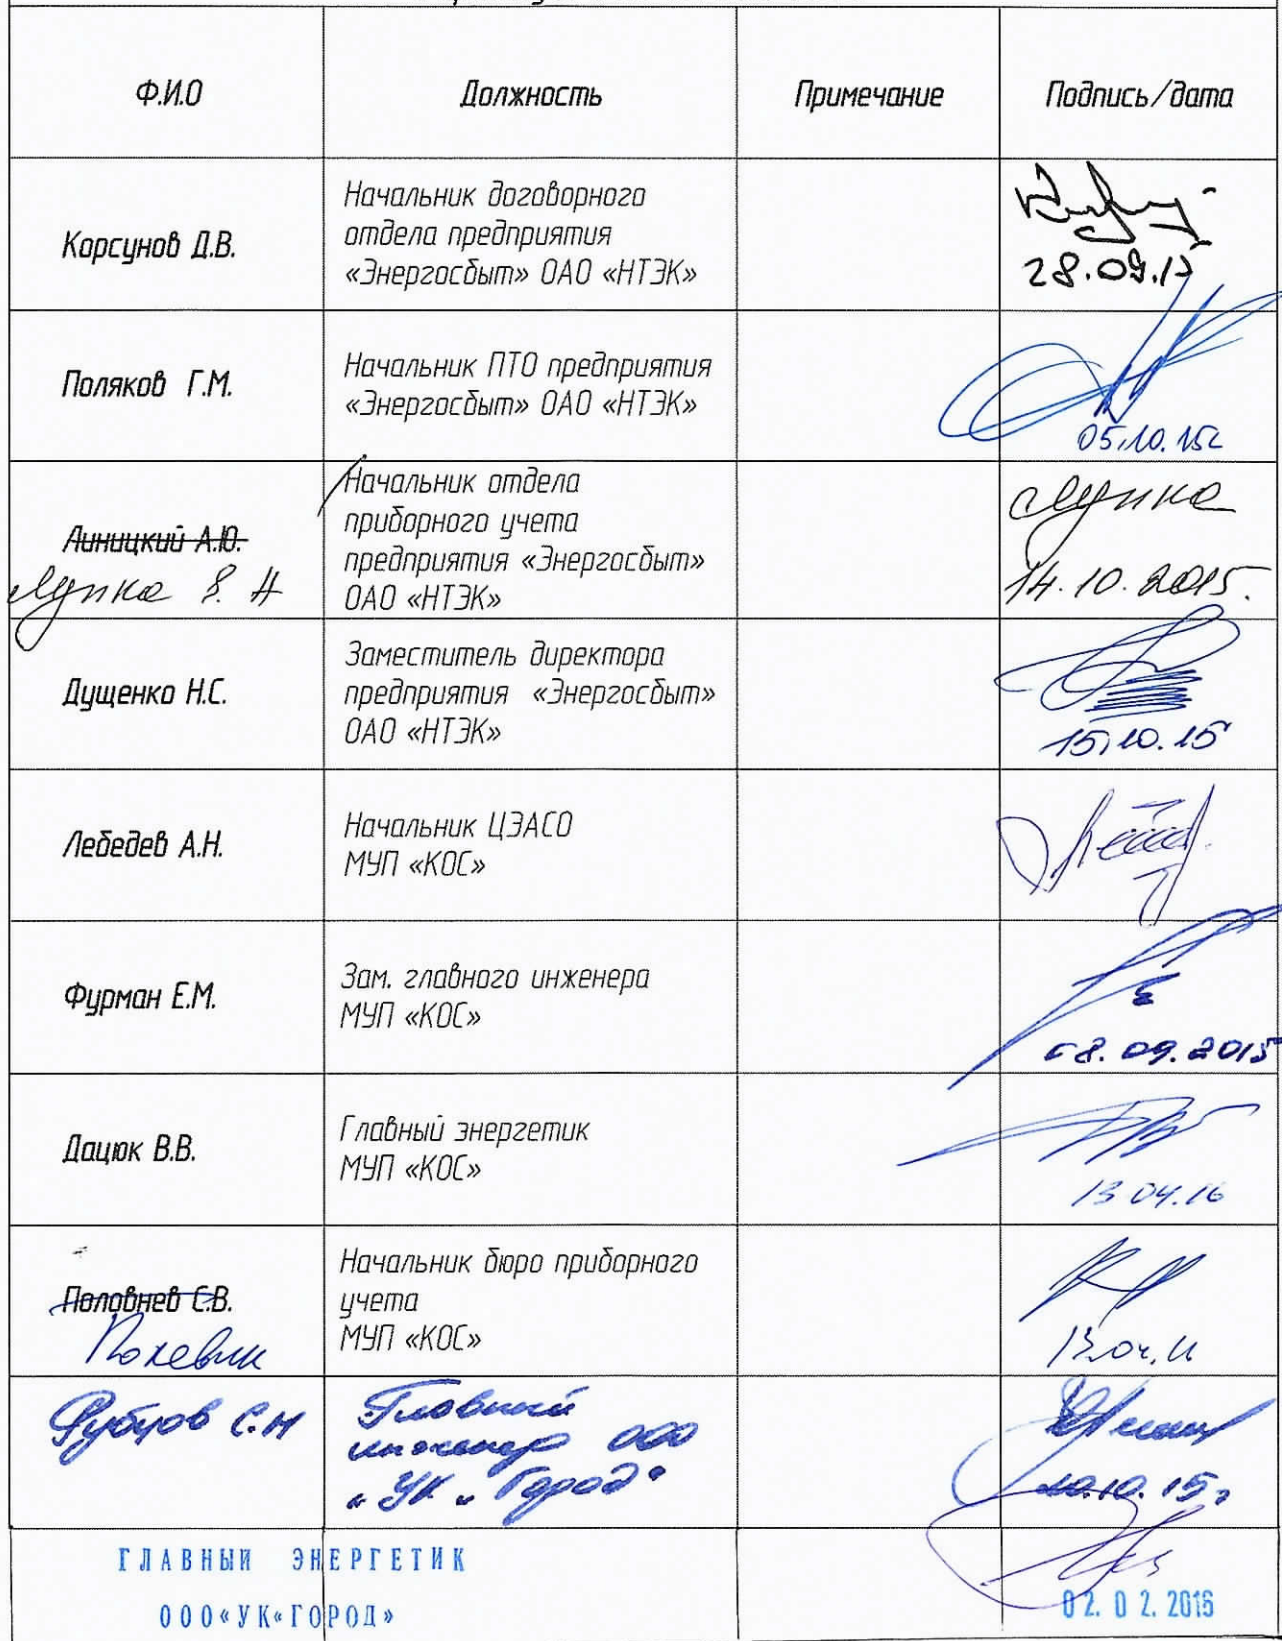 Ф.И.О
Должность
Примечание
Подпись/дата
Корсунов Д.В.
Начальник договорного
отдела предприятия
«Энергосбыт» ОАО «НТЭК»
28.09.15
Поляков Г.М.
Начальник ПТО предприятия
«Энергосбыт» ОАО «НТЭК»
05.10.15г
Линицкий А.Ю.
Лупка Я. А
Начальник отдела
приборного учета
предприятия «Энергосбыт»
ОАО «НТЭК»
Лупка
14.10.2015.
Дущенко Н.С.
Заместитель директора
предприятия «Энергосбыт»
ОАО «НТЭК»
15.10.15
Лебедев А.Н.
Начальник ЦЭАСО
МУП «КОС»
Фурман Е.М.
Зам. главного инженера
МУП «КОС»
09.2015
Дацюк В.В.
Главный энергетик
МУП «КОС»
13.04.16
Половнев С.В.
Начальник бюро приборного
учета
МУП «КОС»
13.04.16
Рубцов С.Н
Главный
инженер ООО
"УК "Город"
10.15г
ГЛАВНЫЙ ЭНЕРГЕТИК
ООО«УК«ГОРОД»
02.02.2016